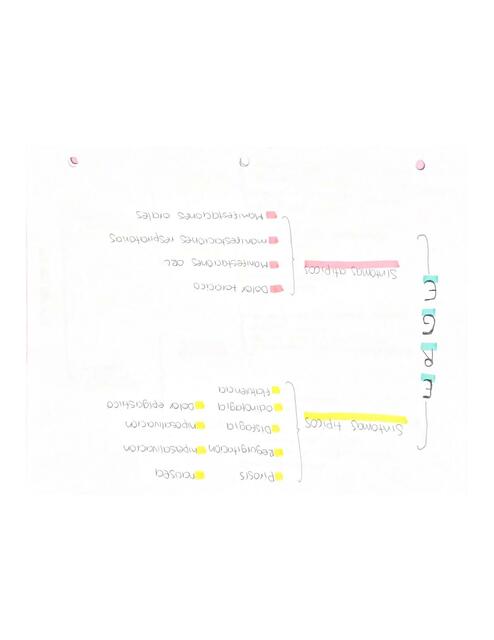 ERGE
Sintomas tipicos
Pirosis nausea
Regurgitacion hipersalivacion
Disfagia hipersalivacion
Odinofagia Dolor epigastrico
Flatulencia
Sintomas atipicos
Dolor toracico
Manifestaciones ORL
manifestaciones respiratorias
Manifestaciones orales